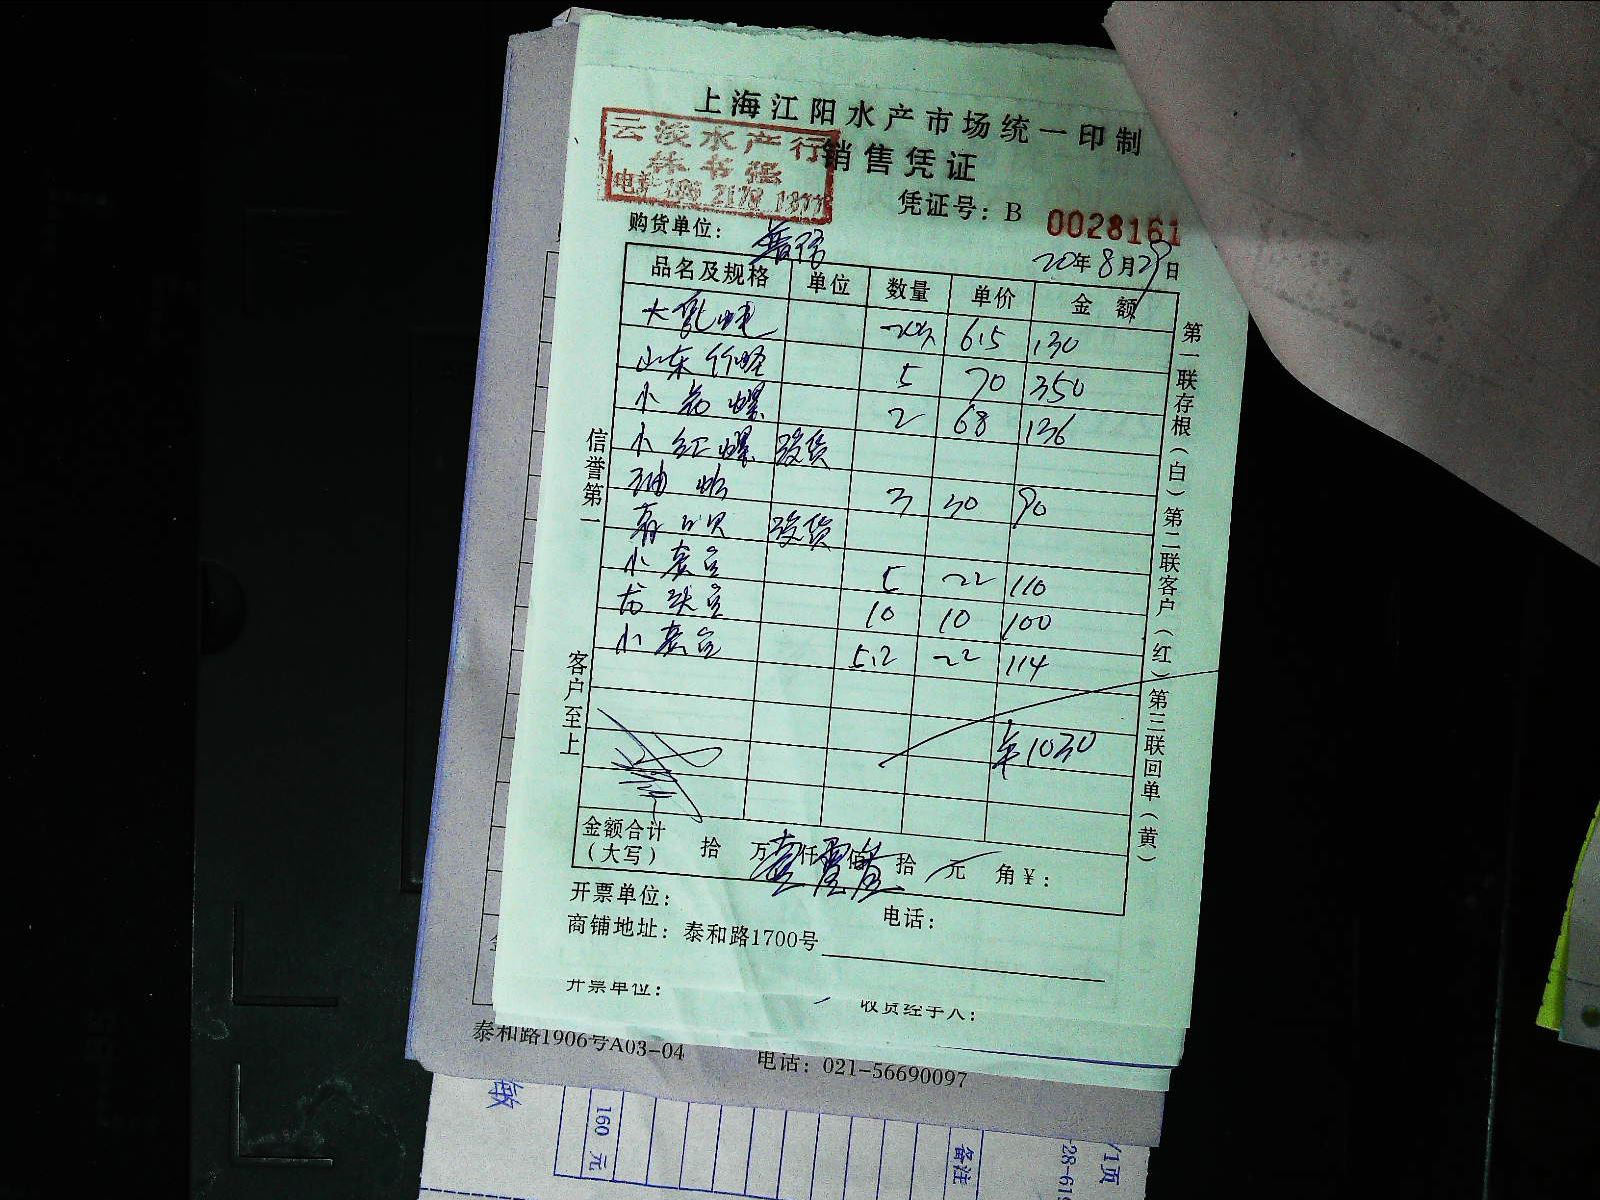 上海江阳水产市场统一印制
云淡水产行
林书强
销售凭证
凭证号：B 0028161
购货单位：
20年8月29日
品名及规格 单位 数量 单价 金额
65 130
山东竹蛏 5 70 350
小花螺 2 68 136
小红螺 没货
3 30 90
没货
5 22 110
龙头 10 10 100
5.2 22 114
¥1030
信誉第一
客户至上
第一联存根（白）第二联客户（红）第三联回单（黄）
金额合计
（大写） 拾 万 仟 佰 拾 元 角 ¥：
开票单位：
电话：
商铺地址：泰和路1700号
开票单位：
收货经手人：
泰和路1906号A03-04 电话：021-56690097
敏
160 元
备注
/1页